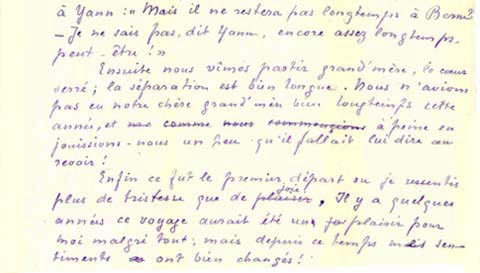 à Yann : « Mais il ne restera pas longtemps à Berne ?
– Je ne sais pas, dit Yann, encore assez longtemps,
peut-être ! »
Ensuite nous vîmes partir grand'mère, le cœur
serré ; la séparation est bien longue. Nous n'avions
pas eu notre chère grand'mèr bien longtemps cette
année, et ~~comme nous commencions~~ à peine en
jouissions-nous un peu qu'il fallait lui dire au
revoir !
Enfin ce fut le premier départ ou je ressentis
plus de tristesse que de ~~plaisir~~ joie. Il y a quelques
années ce voyage aurait été un plaisir pour
moi malgré tout ; mais depuis ce temps mes sen-
timents ont bien changés !